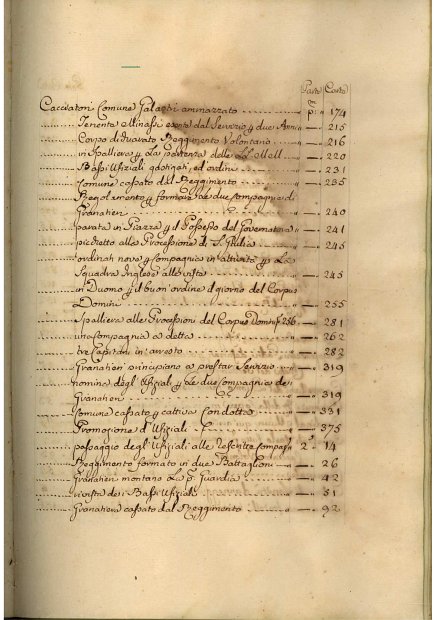 Parte Carta
Cacciatori Comune Galassi ammazzato p.ª 174
Tenente Minassi esente dal Servizio p due Anni 215
Corpo divenuto Reggimento Volontario 216
in Spalliera p La partenza delle LL. 220
Bassi Ufiziali ed ordini 231
Comune cassato dal Reggimento 235
Regolamento p formare le due Compagnie di
Granatieri 240
parata in Piazza p il Possesso del Governatore 241
picchetto alla Processione di S. Giulia 245
ordinati nove p Compagnia in attività p La
Squadra Inglese alle viste 245
in Duomo p il buon' ordine il giorno del Corpus
Domini 255
Spalliera alle Processioni del Corpus Domini 256 281
una Compagnia a detta 262
tre Capitani in arresto 282
Granatieri principiano a prestar Servizio 319
nomina degl' Ufiziali p le due Compagnie de
Granatieri 319
Comune cassato p cattiva Condotta 331
Promozione d'Ufiziali 375
passaggio degl' Ufiziali alle respettive Compag 2ª 14
Reggimento formato in due Battaglioni 26
Granatieri montano La p.ª Guardia 42
rivista dei Bassi Ufiziali 51
Granatiere cassato dal Reggimento 92